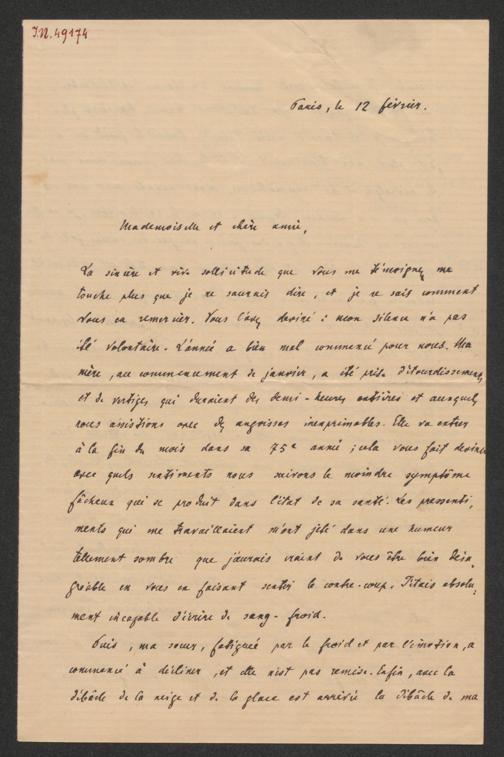 I.N. 49174
Paris, le 12 février.
Mademoiselle et chère amie,
La sincère et vive sollicitude que vous me témoignez me
touche plus que je ne saurais dire, et je ne sais comment
vous en remercier. Vous l'avez deviné : mon silence n'a pas
été volontaire. L'année a bien mal commencé pour nous. Ma
mère, au commencement de janvier, a été prise d'étourdissements
et de vertiges qui duraient des demi-heures entières et auxquels
nous assistions avec des angoisses inexprimables. Elle va entrer
à la fin du mois dans sa 75e année ; cela vous fait deviner
avec quels sentiments nous suivons le moindre symptôme
fâcheux qui se produit dans l'état de sa santé. Les pressenti-
ments qui me travaillaient m'ont jeté dans une humeur
tellement sombre que j'aurais craint de vous être bien désa-
gréable en vous en faisant sentir le contre-coup. J'étais absolu-
ment incapable d'écrire de sang-froid.
Puis, ma sœur, fatiguée par le froid et par l'émotion, a
commencé à décliner, et elle n'est pas remise. Enfin, avec la
débâcle de la neige et de la glace est arrivée la débâcle de ma